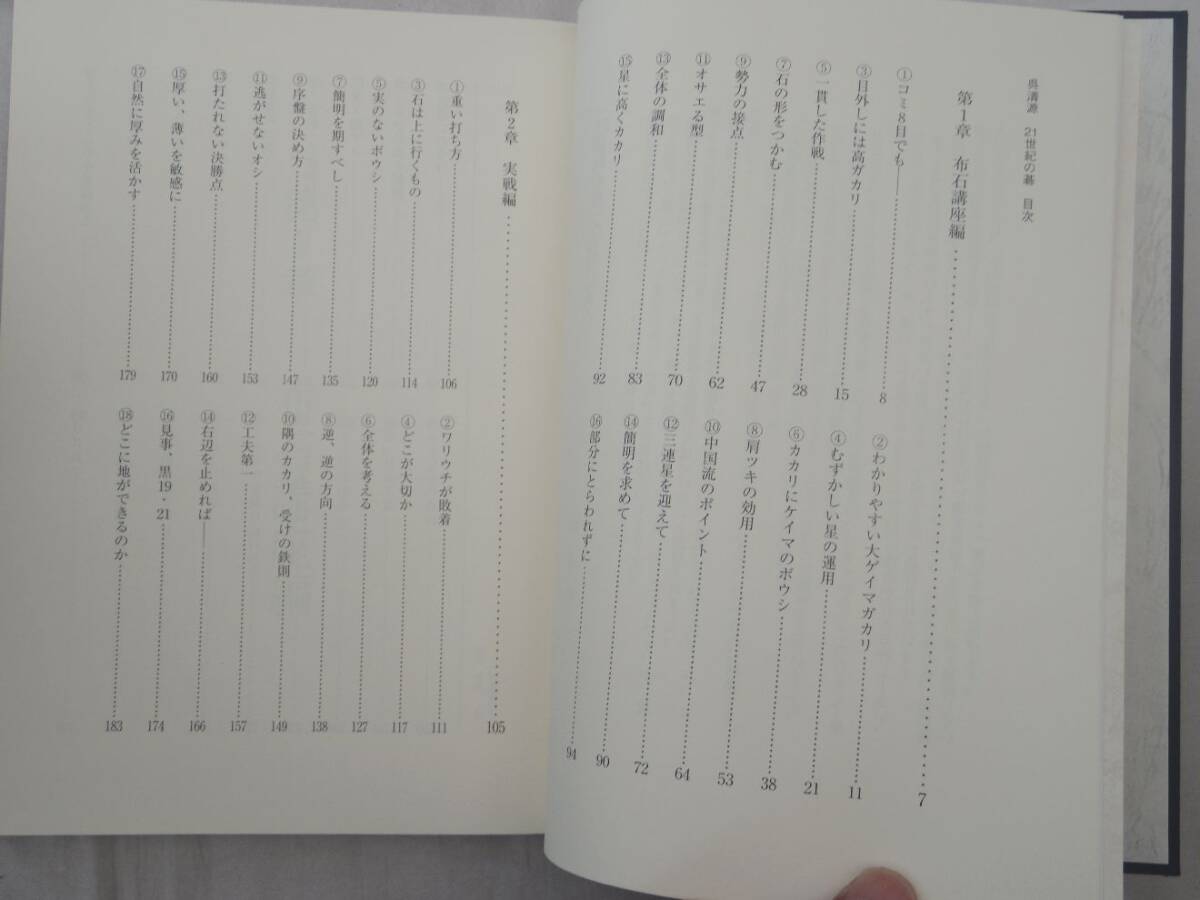 呉清源 21世紀の碁 目次
第1章 布石講座編 7
①コミ8目でも—— 8
②わかりやすい大ゲイマガカリ 11
③目外しには高ガカリ 15
④むずかしい星の運用 21
⑤一貫した作戦 28
⑥カカリにケイマのボウシ 38
⑦石の形をつかむ 47
⑧肩ツキの効用 53
⑨勢力の接点 62
⑩中国流のポイント 64
⑪オサエる型 70
⑫三連星を迎えて 72
⑬全体の調和 83
⑭簡明を求めて 90
⑮星に高くカカリ 92
⑯部分にとらわれずに 94
第2章 実戦編 105
①重い打ち方 106
②ワリウチが敗着 111
③石は上に行くもの 114
④どこが大切か 117
⑤実のないボウシ 120
⑥全体を考える 127
⑦簡明を期すべし 135
⑧逆、逆の方向 138
⑨序盤の決め方 147
⑩隅のカカリ、受けの鉄則 149
⑪逃がせないオシ 153
⑫工夫第一 157
⑬打たれない決勝点 160
⑭右辺を止めれば—— 166
⑮厚い、薄いを敏感に 170
⑯見事、黒19・21 174
⑰自然に厚みを活かす 179
⑱どこに地ができるのか 183